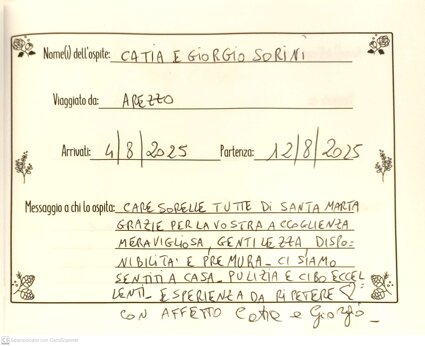 Nome(i) dell'ospite: CATIA E GIORGIO SORINI
Viaggiato da: AREZZO
Arrivati: 4/8/2025 Partenza: 12/8/2025
Messaggio a chi lo ospita: CARE SORELLE TUTTE DI SANTA MARTA
GRAZIE PER LA VOSTRA ACCOGLIENZA
MERAVIGLIOSA, GENTILEZZA, DISPO-
NIBILITA' E PREMURA - CI SIAMO
SENTITI A CASA - PULIZIA E CIBO ECCEL
LENTI - ESPERIENZA DA RIPETERE
CON AFFETTO Catia e Giorgio -
Scansionato con CamScanner